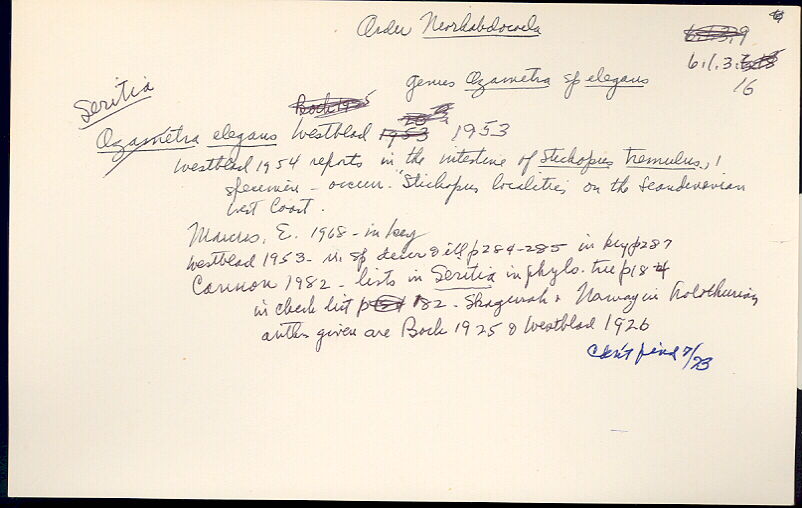 Order Neorhabdocoela
6.1.3.9
6.1.3.
16
genus Ozametra sp elegans
Seritia
Bock 1925
Ozametra elegans Westblad 1953 1953
Westblad 1954 reports in the intestine of Stichopus tremulus, 1
specimen - occur. "Stichopus localities on the Scandinavian
West Coast.
Marcus, E. 1968 - in key
Westblad 1953 - n. sp descr & ill p284-285 in key p287
Cannon 1982 - lists in Seritia in phylo. tree p184
in check list p 182 - Skagerrak & Norway in holothurian
auths given are Bock 1925 & Westblad 1926
Can't find 7/73